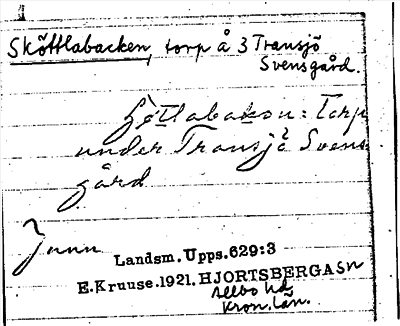 Sköttlabacken, torp å 3 Transjö
Svensgård.
torp
under Transjö Svens
gård
Landsm. Upps. 629:3
E. Kruuse. 1921. HJORTSBERGA SN
Allbo hd.
Kron. län.